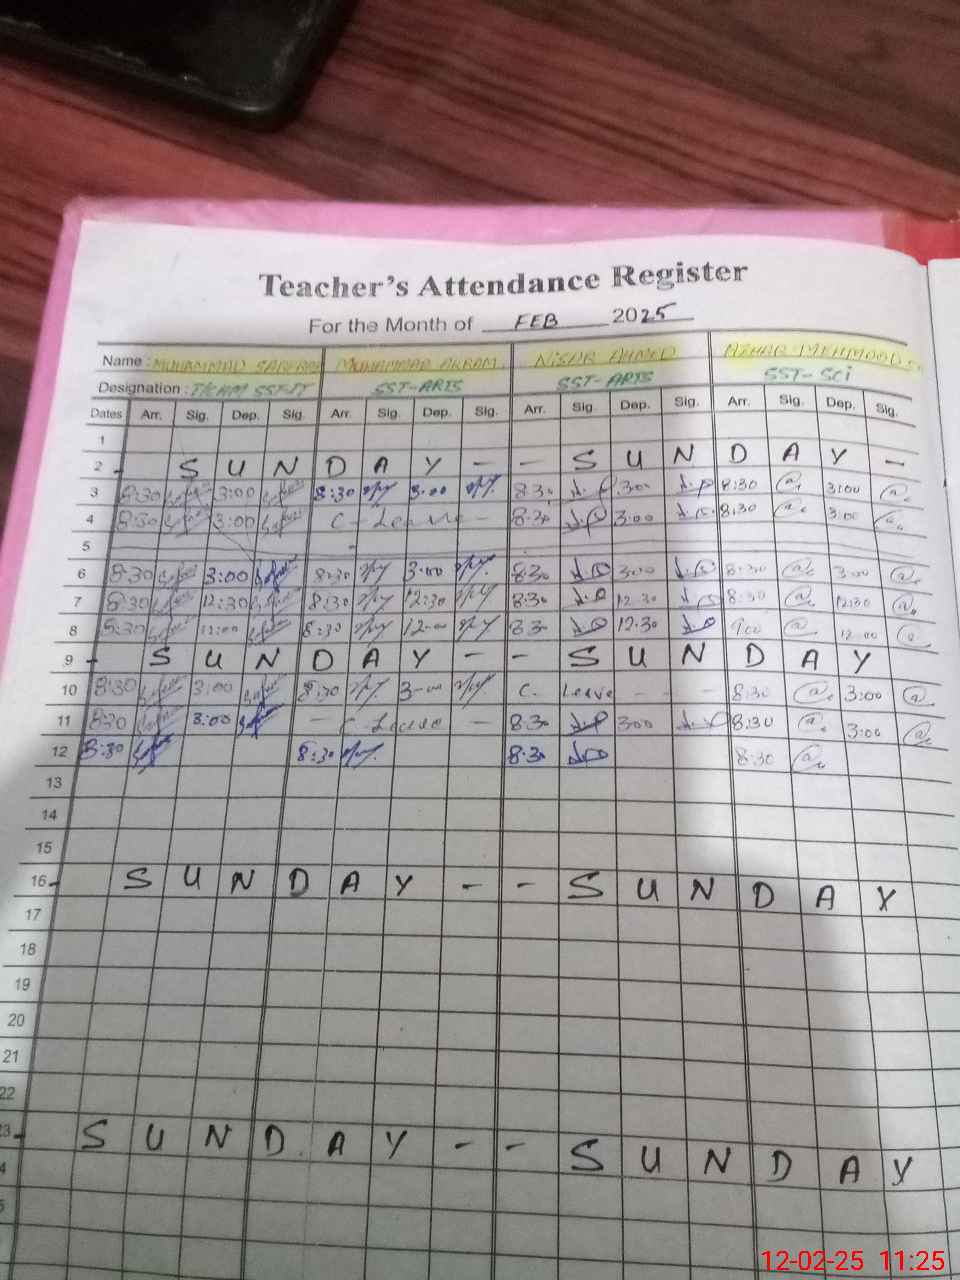 Teacher's Attendance Register
For the Month of FEB 2025
Name : MUHAMMAD SARFRAZ MUHAMMAD AKRAM NISAR AHMED AZHAR MEHMOOD
Designation : SST-IT SST-ARTS SST-ARTS SST-SCi
Dates Arr. Sig. Dep. Sig. Arr. Sig. Dep. Sig. Arr. Sig. Dep. Sig. Arr. Sig. Dep. Sig.
1
2 - S U N D A Y - - S U N D A Y -
3 8:30 3:00 8:30 3:00 8:30 3:00 8:30 3:00
4 8:30 3:00 C - Leave - 8:30 3:00 8:30 3:00
5
6 8:30 3:00 8:30 3:00 8:30 3:00 8:30 3:00
7 8:30 12:30 8:30 12:30 8:30 12:30 8:30 12:30
8 8:30 12:00 8:30 12-00 8:30 12:30 9:00 12:00
9 - S U N D A Y - - S U N D A Y
10 8:30 3:00 8:30 3-00 C. Leave - - - 8:30 3:00
11 8:30 3:00 - C - Leave - 8:30 3:00 8:30 3:00
12 8:30 8:30 8:30 8:30
13
14
15
16 - S U N D A Y - - S U N D A Y
17
18
19
20
21
22
3 - S U N D A Y - - S U N D A Y
4
5
12-02-25 11:25